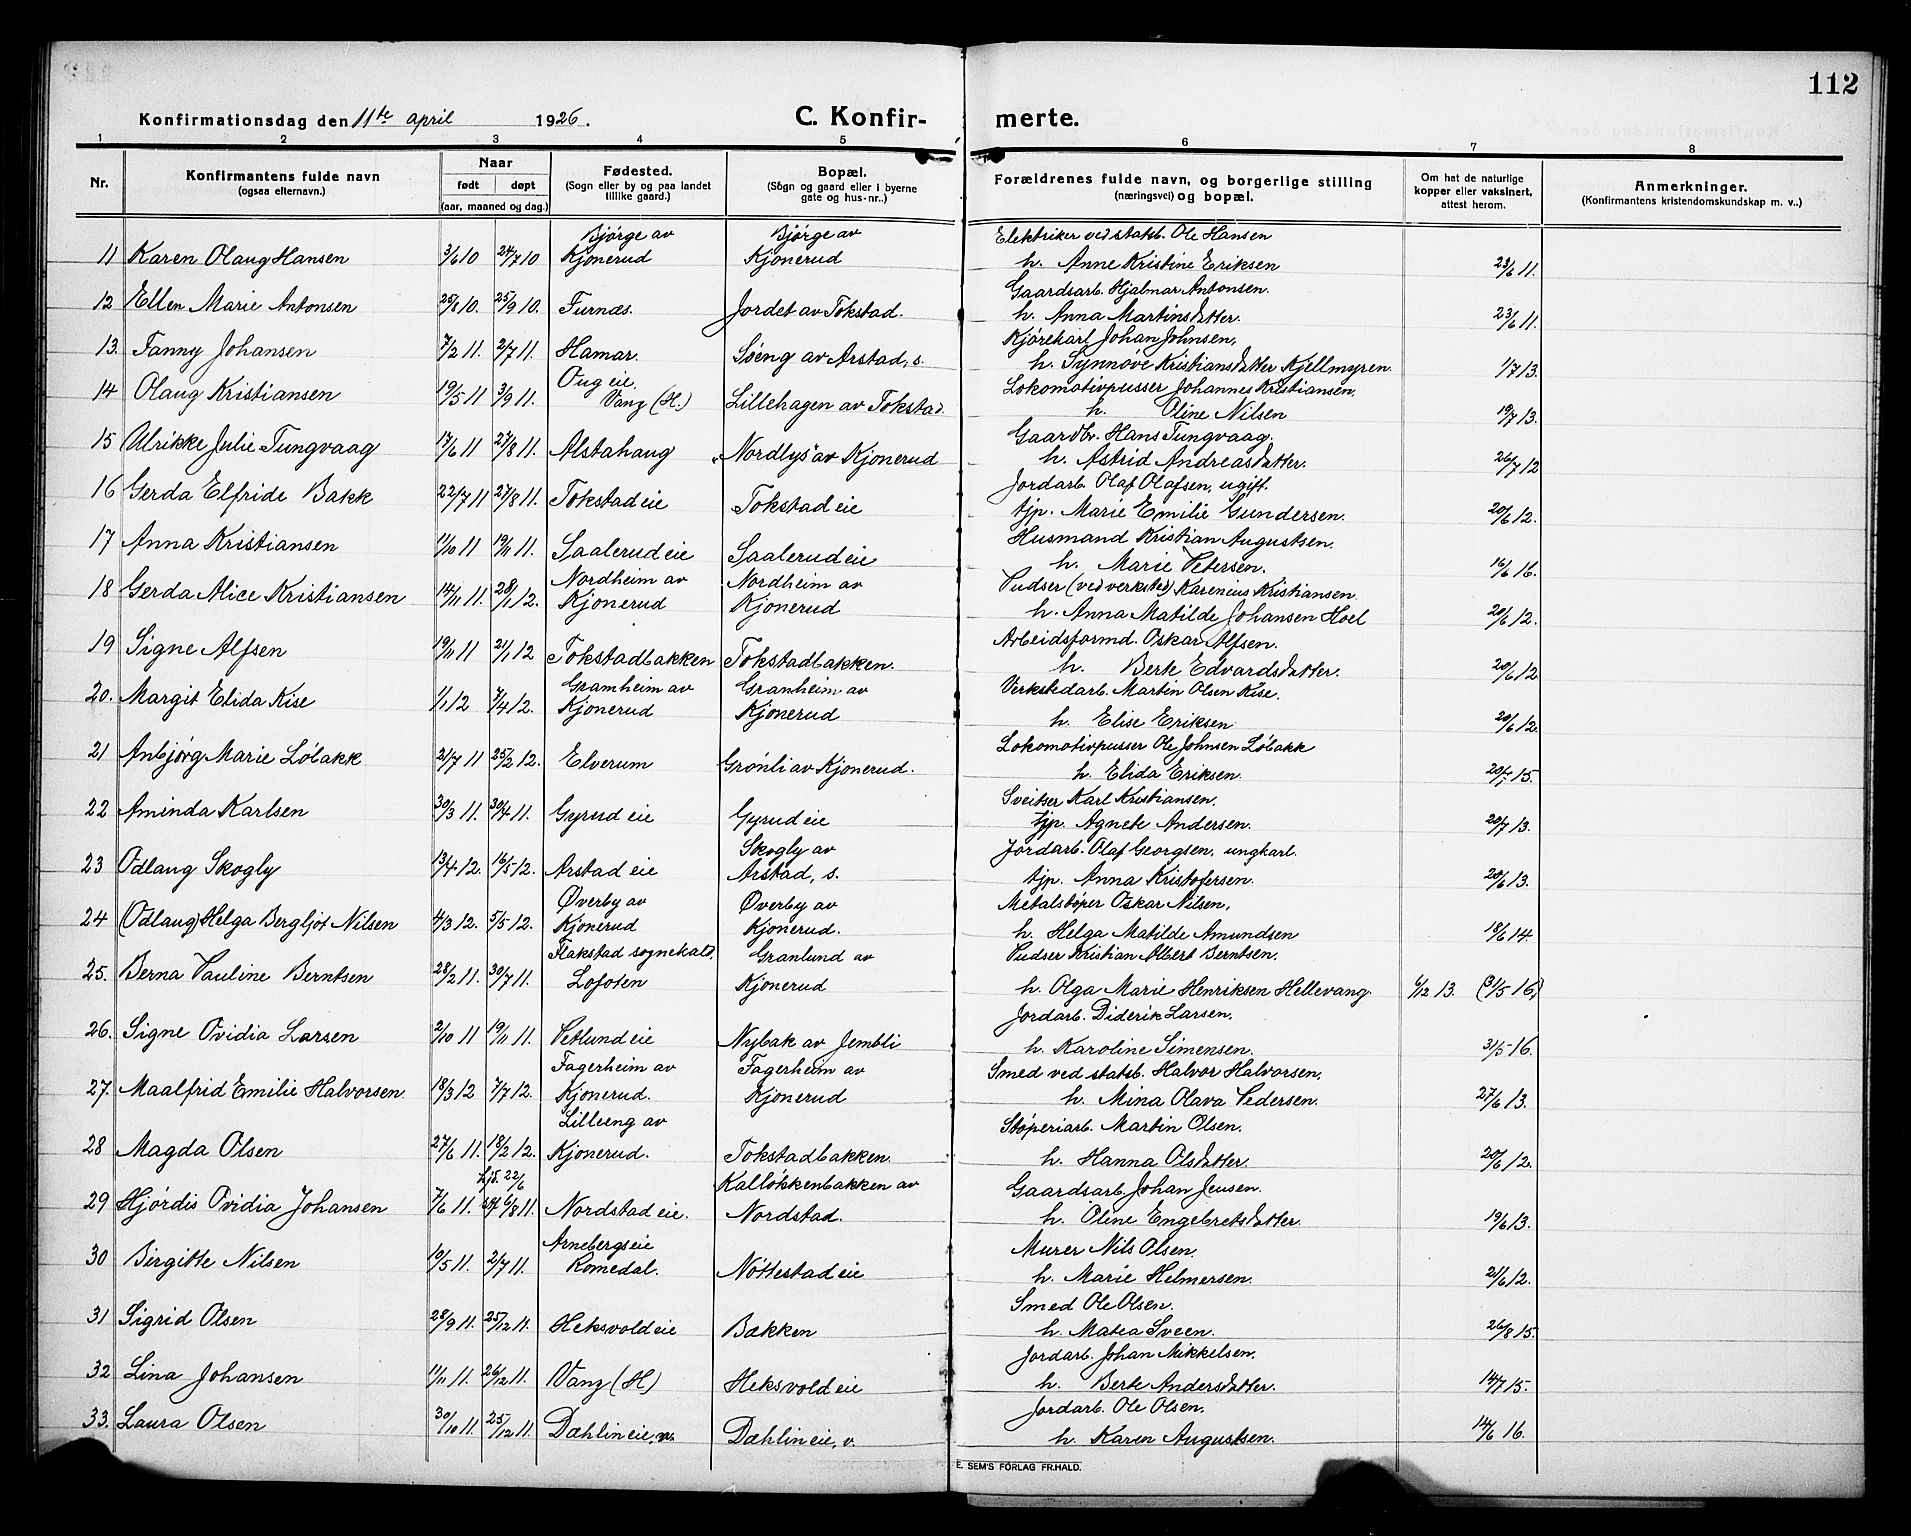 112
Konfirmationsdag den 11te april 1926. C. Konfirmerte.
1 2 3 4 5 6 7 8
Nr. Konfirmantens fulde navn (ogsaa efternavn.) Naar født døpt (aar, maaned og dag.) Fødested. (Sogn eller by og paa landet tillike gaard.) Bopæl. (Sogn og gaard eller i byerne gate og hus-nr..) Forældrenes fulde navn, og borgerlige stilling (næringsvei) og bopæl. Om hat de naturlige kopper eller vaksinert, attest herom. Anmerkninger. (Konfirmantens kristendomskundskap m. v..)
Bjørge av Bjørge av Elektriker ved statsb. Ole Hansen
11 Karen Olaug Hansen 3/6 10 24/7 10 Kjonerud Kjonerud h. Anne Kristine Eriksen 23/6 11.
Gaardsarb. Hjalmar Antonsen.
12 Ellen Marie Antonsen 25/8 10. 25/9 10. Furnæs. Jordet av Tokstad. h. Anna Martinsdatter. 23/6 11.
Kjørekarl Johan Johnsen,
13. Fanny Johansen 7/2 11. 2/7 11. Hamar. Søeng av Arstad, s. h. Synnøve Kristiansdatter Kjellmyren. 1/7 13.
Oug eie, Lokomotivpusser Johannes Kristiansen,
14 Olaug Kristiansen 19/5 11 3/9 11. Vang (H.) Lillehagen av Tokstad. h. Oline Nilsen 19/7 13.
Gaardbr. Hans Tungvaag.
15 Ulrikke Julie Tungvaag 17/6 11 27/8 11. Alstahaug "Nordlys" av Kjonerud h. Astrid Andreasdatter. 26/7 12
Jordarb. Olaf Olafsen, ugift.
16 Gerda Elfride Bakk 22/7 11 27/8 11. Tokstad eie Tokstad eie tjp. Marie Emilie Gundersen. 20/6 12.
Husmand Kristian Augustsen.
17 Anna Kristiansen 11/10 11 19/11 11. Saalerud eie Saalerud eie h. Marie Petersen. 16/6 16.
Nordheim av Nordheim av Pudser (ved verksted) Karenius Kristiansen.
18 Gerda Alice Kristiansen 14/11 11. 28/1 12. Kjonerud Kjonerud h. Anna Matilde Johansen Hoel 20/6 12.
Arbeidsformd. Oskar Alfsen.
19 Signe Alfsen 19/11 11 21/1 12 Tokstadbakken Tokstadbakken. h. Berte Edvardsdatter. 20/6 12
Gramheim av Granheim av Verkstedarb. Martin Olsen Kise.
20. Margit Elida Kise 1/1 12 7/4 12. Kjonerud Kjonerud h. Elise Eriksen 20/6 12.
Lokomotivpusser Ole Johnsen Løbakk
21 Anbjørg Marie Løbakk 21/7 11 25/2 12. Elverum Grønli av Kjonerud. h. Elida Eriksen. 15.
Sveitser Karl Kristiansen,
22 Aminda Karlsen 30/3 11. 30/4 11. Gyrud eie Gyrud eie tjp. Agnete Andersen. 20/7 13.
Skogly av Jordarb. Olaf Georgsen, ungkarl.
23 Odlaug Skogly 13/4 12. 16/5 12. Arstad eie Arstad, s. tjp. Anna Kristofersen. 20/6 13.
Øverby av Øverby av Metalstøper Oskar Nilsen,
24 (Odlaug) Helga Bergljot Nilsen 4/3 12. 5/5 12. Kjonerud Kjonerud. h. Helga Matilde Amundsen 18/6 14.
Flakstad sognekald, Granlund av Pudser Kristian Albert Berntsen.
25. Berna Pauline Berntsen 28/2 11. 30/7 11. Lofoten Kjonerud h. Olga Marie Henriksen Hellevang. 6/12 13. (31/5 16.)
Jordarb. Diderik Larsen,
26. Signe Ovidia Larsen 2/10 11 19/11 11. Vetlund eie Nybak av Jembli h. Karoline Simensen. 31/5 16.
Fagerheim av Fagerheim av Smed ved statsb. Halvor Halvorsen.
27. Maalfrid Emilie Halvorsen. 18/3 12 7/7 12. Kjonerud. Kjonerud h. Mina Olava Pedersen. 27/6 13.
Lilleeng av Støperiarb. Martin Olsen.
28 Magda Olsen 27/6 11. 18/2 12. Kjonerud. Tokstadbakken. h. Hanna Olsdatter. 20/6 12.
hjd. 22/6 Kalløkkenbakken av Gaardsarb. Johan Jensen.
29 Hjørdis Ovidia Johansen 7/6 11. 6/8 11. Nordstad eie. Nordstad. h. Oline Engebretsdatter. 19/6 13.
Arnebergseie Murer Nils Olsen.
30 Birgitte Nilsen 19/5 11. 2/7 11. Romedal. Nøttestad eie h. Marie Helmersen. 21/6 12.
Smed Ole Olsen.
31 Sigrid Olsen 28/9 11. 25/12 11. Heksvold eie Bakken h. Matea Sveen. 26/8 15.
Jordarb. Johan Mikkelsen.
32 Lina Johansen 11/11 11. 26/12 11. Vang (H) Heksvold eie h. Berte Andersdatter. 14/7 15.
Jordarb. Ole Olsen.
33. Laura Olsen 30/10 11. 25/12 11. Dæhlin eie, v. Dæhlin eie, v. h. Karen Augustsen. 14/6 16.
E. SEM'S FORLAG FR.HALD.